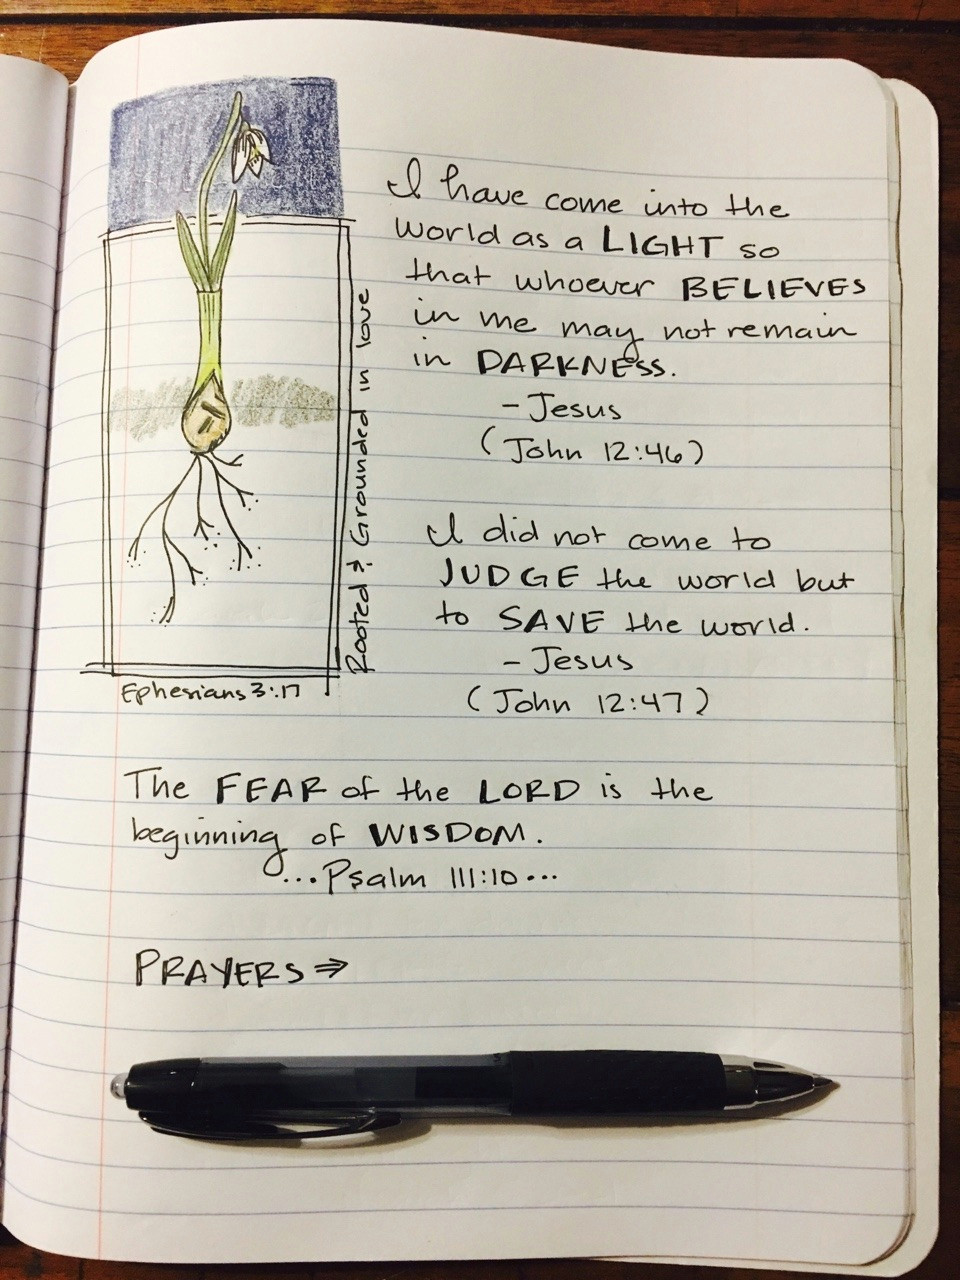 I have come into the
world as a LIGHT so
that whoever BELIEVES
in me may not remain
in DARKNESS.
- Jesus
(John 12:46)
Rooted & Grounded in love
Ephesians 3:17
I did not come to
JUDGE the world but
to SAVE the world.
- Jesus
(John 12:47)
The FEAR of the LORD is the
beginning of WISDOM.
...Psalm 111:10...
PRAYERS ⇒